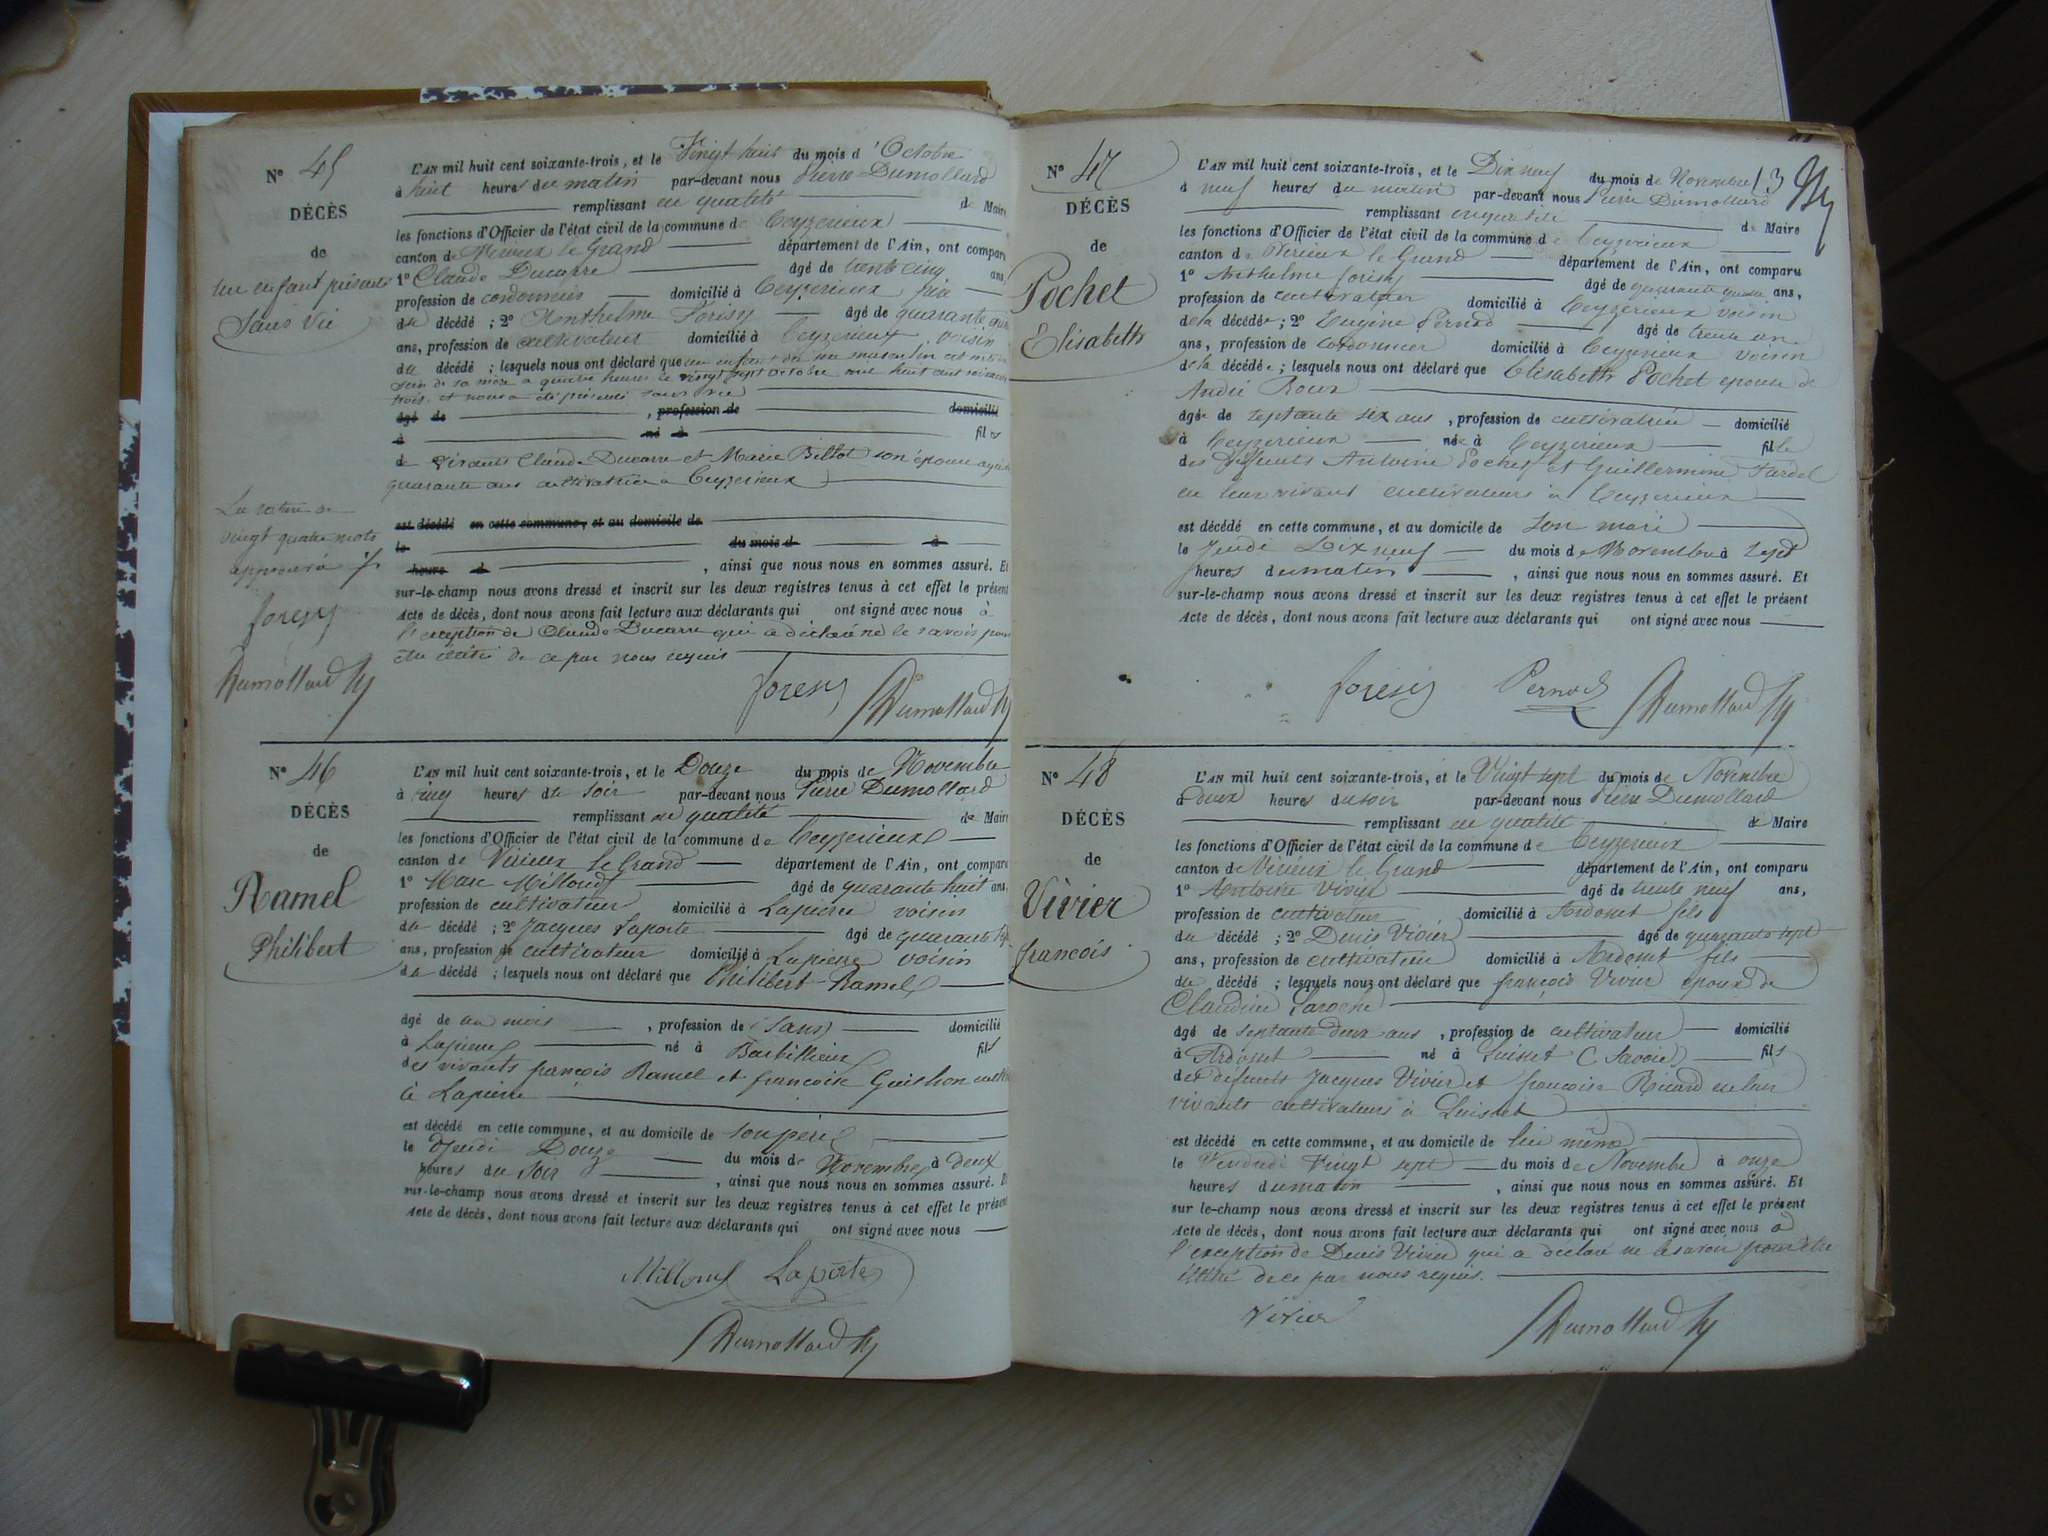 N° 45
DÉCÈS
de
un enfant présenté
Sans Vie
L'AN mil huit cent soixante-trois, et le Vingt huit du mois d'Octobre
à huit heures du matin par-devant nous Pierre Dumollard
remplissant en qualité de Maire
les fonctions d'Officier de l'état civil de la commune de Ceyzerieux
canton de Virieux le Grand département de l'Ain, ont comparu
1° Claude Ducarre âgé de trente cinq ans,
profession de cordonnier domicilié à Ceyzerieux
du décédé ; 2° Anthelme Foresy âgé de quarante
ans, profession de cultivateur domicilié à Ceyzerieux voisin
du décédé ; lesquels nous ont déclaré que un enfant du masculin est
sein de sa mère a quatre heures le vingt sept octobre mil huit cent soixante
trois et nous a été présenté sans vie
âgé de , profession de domicilié
à né à fils
de vivants Claude Ducarre et Marie Billot son épouse agée
quarante ans cultivatrice a Ceyzerieux
La rature de
vingt quatre mots
approuvée
foresy
Dumollard
est décédé en cette commune, et au domicile de
le du mois d à
heure d , ainsi que nous nous en sommes assuré. Et
sur-le-champ nous avons dressé et inscrit sur les deux registres tenus à cet effet le présent
Acte de décès, dont nous avons fait lecture aux déclarants qui ont signé avec nous à
l'exception de Claude Ducarre qui a déclaré ne le savoir pour
de ce par nous requis
foresy Dumollard
N° 46
DÉCÈS
de
Ramel
Philibert
L'AN mil huit cent soixante-trois, et le Douze du mois de Novembre
à cinq heures du soir par-devant nous Pierre Dumollard
remplissant en qualité de Maire
les fonctions d'Officier de l'état civil de la commune de Ceyzerieux
canton de Virieux le Grand département de l'Ain, ont comparu
1° Marc Millouds âgé de quarante huit ans,
profession de cultivateur domicilié à Lapierre voisin
du décédé ; 2° Jacques Laporte âgé de quarante
ans, profession de cultivateur domicilié à Lapierre voisin
du décédé ; lesquels nous ont déclaré que Philibert Ramel
âgé de un mois , profession de (sans) domicilié
à Lapierre né à Barbillieux fils
des vivants françois Ramel et françoise Guishon
à Lapierre
est décédé en cette commune, et au domicile de son père
le Jeudi Douze du mois de Novembre à deux
heures du soir , ainsi que nous nous en sommes assuré. Et
sur-le-champ nous avons dressé et inscrit sur les deux registres tenus à cet effet le présent
Acte de décès, dont nous avons fait lecture aux déclarants qui ont signé avec nous
Laporte
Dumollard
N° 47
DÉCÈS
de
Pochet
Elisabeth
13
L'AN mil huit cent soixante-trois, et le Dix neuf du mois de Novembre
à neuf heures du matin par-devant nous Pierre Dumollard
remplissant en qualité de Maire
les fonctions d'Officier de l'état civil de la commune de Ceyzerieux
canton de Virieux le Grand département de l'Ain, ont comparu
1° Anthelme foresy âgé de quarante ans,
profession de cultivateur domicilié à Ceyzerieux voisin
de la décédée ; 2° Eugène Pernod âgé de trente
ans, profession de cordonnier domicilié à Ceyzerieux voisin
de la décédée ; lesquels nous ont déclaré que Elisabeth Pochet épouse de
André Roux
âgée de septante six ans , profession de cultivatrice domicilié
à Ceyzerieux née à Ceyzerieux fille
des défunts Antoine Pochet et Guillermine Tardel
en leur vivant cultivateurs à Ceyzerieux
est décédé en cette commune, et au domicile de son mari
le Jeudi Dix neuf du mois de Novembre à sept
heures du matin , ainsi que nous nous en sommes assuré. Et
sur-le-champ nous avons dressé et inscrit sur les deux registres tenus à cet effet le présent
Acte de décès, dont nous avons fait lecture aux déclarants qui ont signé avec nous
foresy Pernod Dumollard
N° 48
DÉCÈS
de
Vivier
françois
L'AN mil huit cent soixante-trois, et le Vingt sept du mois de Novembre
à deux heures du soir par-devant nous Pierre Dumollard
remplissant en qualité de Maire
les fonctions d'Officier de l'état civil de la commune de Ceyzerieux
canton de Virieux le Grand département de l'Ain, ont comparu
1° Antoine Vivier âgé de trente neuf ans,
profession de cultivateur domicilié à Ardosset fils
du décédé ; 2° Denis Vivier âgé de quarante sept
ans, profession de cultivateur domicilié à Ardosset fils
du décédé ; lesquels nous ont déclaré que françois Vivier époux de
Claudine Laroche
âgé de septante deux ans , profession de cultivateur domicilié
à Ardosset né à (Savoie) fils
des défunts Jacques Vivier et françoise Ricard en leur
vivants cultivateurs à
est décédé en cette commune, et au domicile de lui même
le Vendredi Vingt sept du mois de Novembre à onze
heures du matin , ainsi que nous nous en sommes assuré. Et
sur-le-champ nous avons dressé et inscrit sur les deux registres tenus à cet effet le présent
Acte de décès, dont nous avons fait lecture aux déclarants qui ont signé avec nous à
l'exception de Denis Vivier qui a déclaré ne le savoir pour être
illitré de ce par nous requis.
Vivier Dumollard